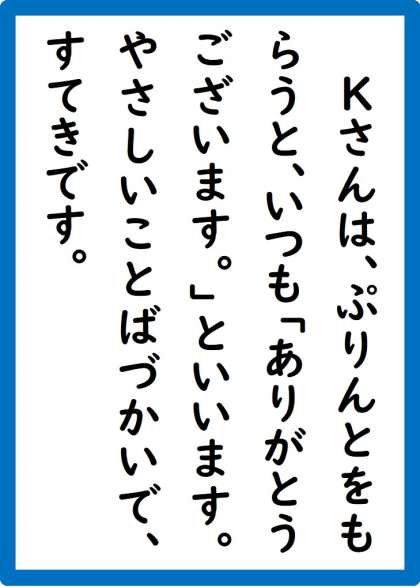 Kさんは、ぷりんとをも
らうと、いつも「ありがとう
ございます。」といいます。
やさしいことばづかいで、
すてきです。